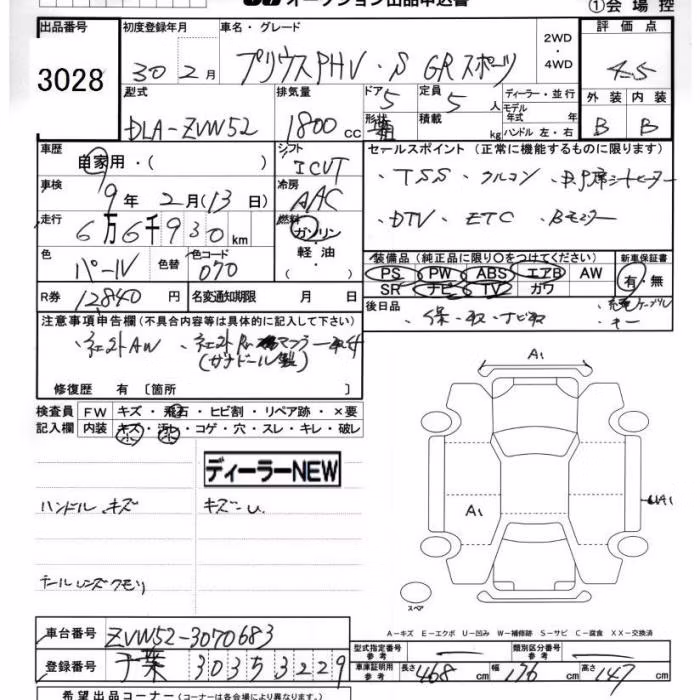 オークション出品申込書
①会場控
出品番号 初度登録年月 車名・グレード 2WD・4WD 評価点
3028 30年2月 プリウスPHV・S GRスポーツ 4.5
型式 排気量 ドア 定員 ディーラー・並行 外装 内装
DLA-ZVW52 1800cc 5 5人 モデル年式 年 B B
形状 積載 kg ハンドル 左・右
車歴 シフト セールスポイント（正常に機能するものに限ります）
自家用・（ ） ICVT ・TSS ・クルコン ・D,P席シートヒーター
車検 冷房
9年2月（13日） AAC ・DTV ・ETC ・Bモニター
走行 燃料
6万6千930km ガソリン・軽油・（ ）
装備品（純正品に限り〇をつけてください） 新車保証書
色 色替 色コード PS PW ABS エアB AW 有・無
パール 070 SR ナビ TV カワ
R券 12840円 名変通知期限 月 日 後日品 ・保・取・ナビ取 ・充電ケーブル
・キー
注意事項申告欄（不具合内容等は具体的に記入して下さい）
・社外AW
修復歴 有〔箇所 〕
検査員記入欄 FW キズ・飛石・ヒビ割・リペア跡・×要
内装 キズ・汚れ・コゲ・穴・スレ・キレ・破レ
ディーラーNEW
ハンドルキズ キズ-U.
テールレンズクモリ
A1
A1
A1
スペア
A-キズ E-エクボ U-凹み W-補修跡 S-サビ C-腐食 XX-交換済
車台番号 ZVW52-3070683
型式指定番号 参考 類別区分番号 参考
登録番号 千葉 303 5 3229
車庫証明用 参考 長さ 468cm 幅 176cm 高さ 147cm
希望出品コーナー（コーナーは各会場により異なります。）